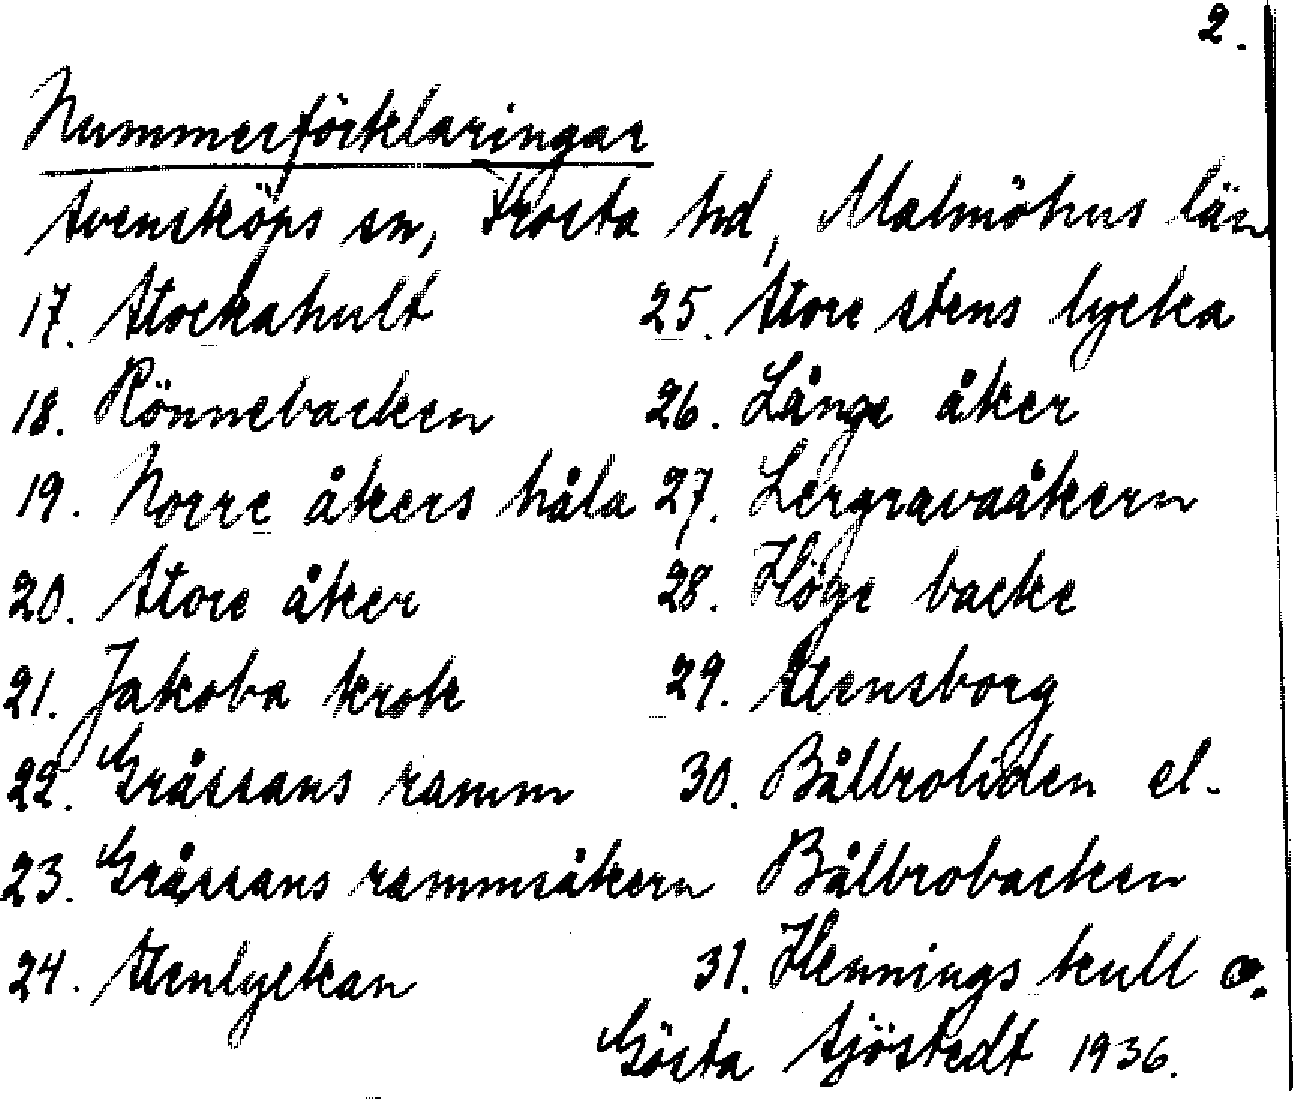 2.
Nummerförklaringar
Svensköps sn, Frosta hd, Malmöhus län
17. Stockahult
18. Rönnebacken
19. Norre åkers håla
20. Store åker
21. Jakoba krok
22. Gråssans ramm
23. Gråssans rammsåkern
24. Stenlyckan
25. Store stens lycka
26. Långe åker
27. Lergravaåkern
28. Höge backe
29. Stensborg
30. Bålbroliden el.
Bålbrobacken
31. Hennings kull o.
Gösta Sjöstedt 1936.